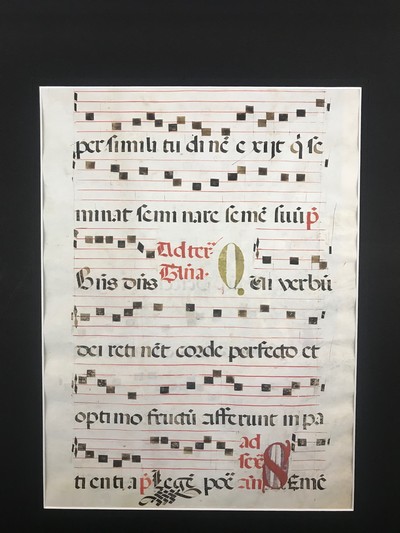 per simili tu di nē e xijt q̄ se
minat semi nare semē suū p̄
Ad ter̄
Bn̄s dn̄s Q ui verbū
dei reti nēt corde perfecto et
opti mo fructū afferunt in pa
ad
ti enti a p̄ Legē poē añ Semē